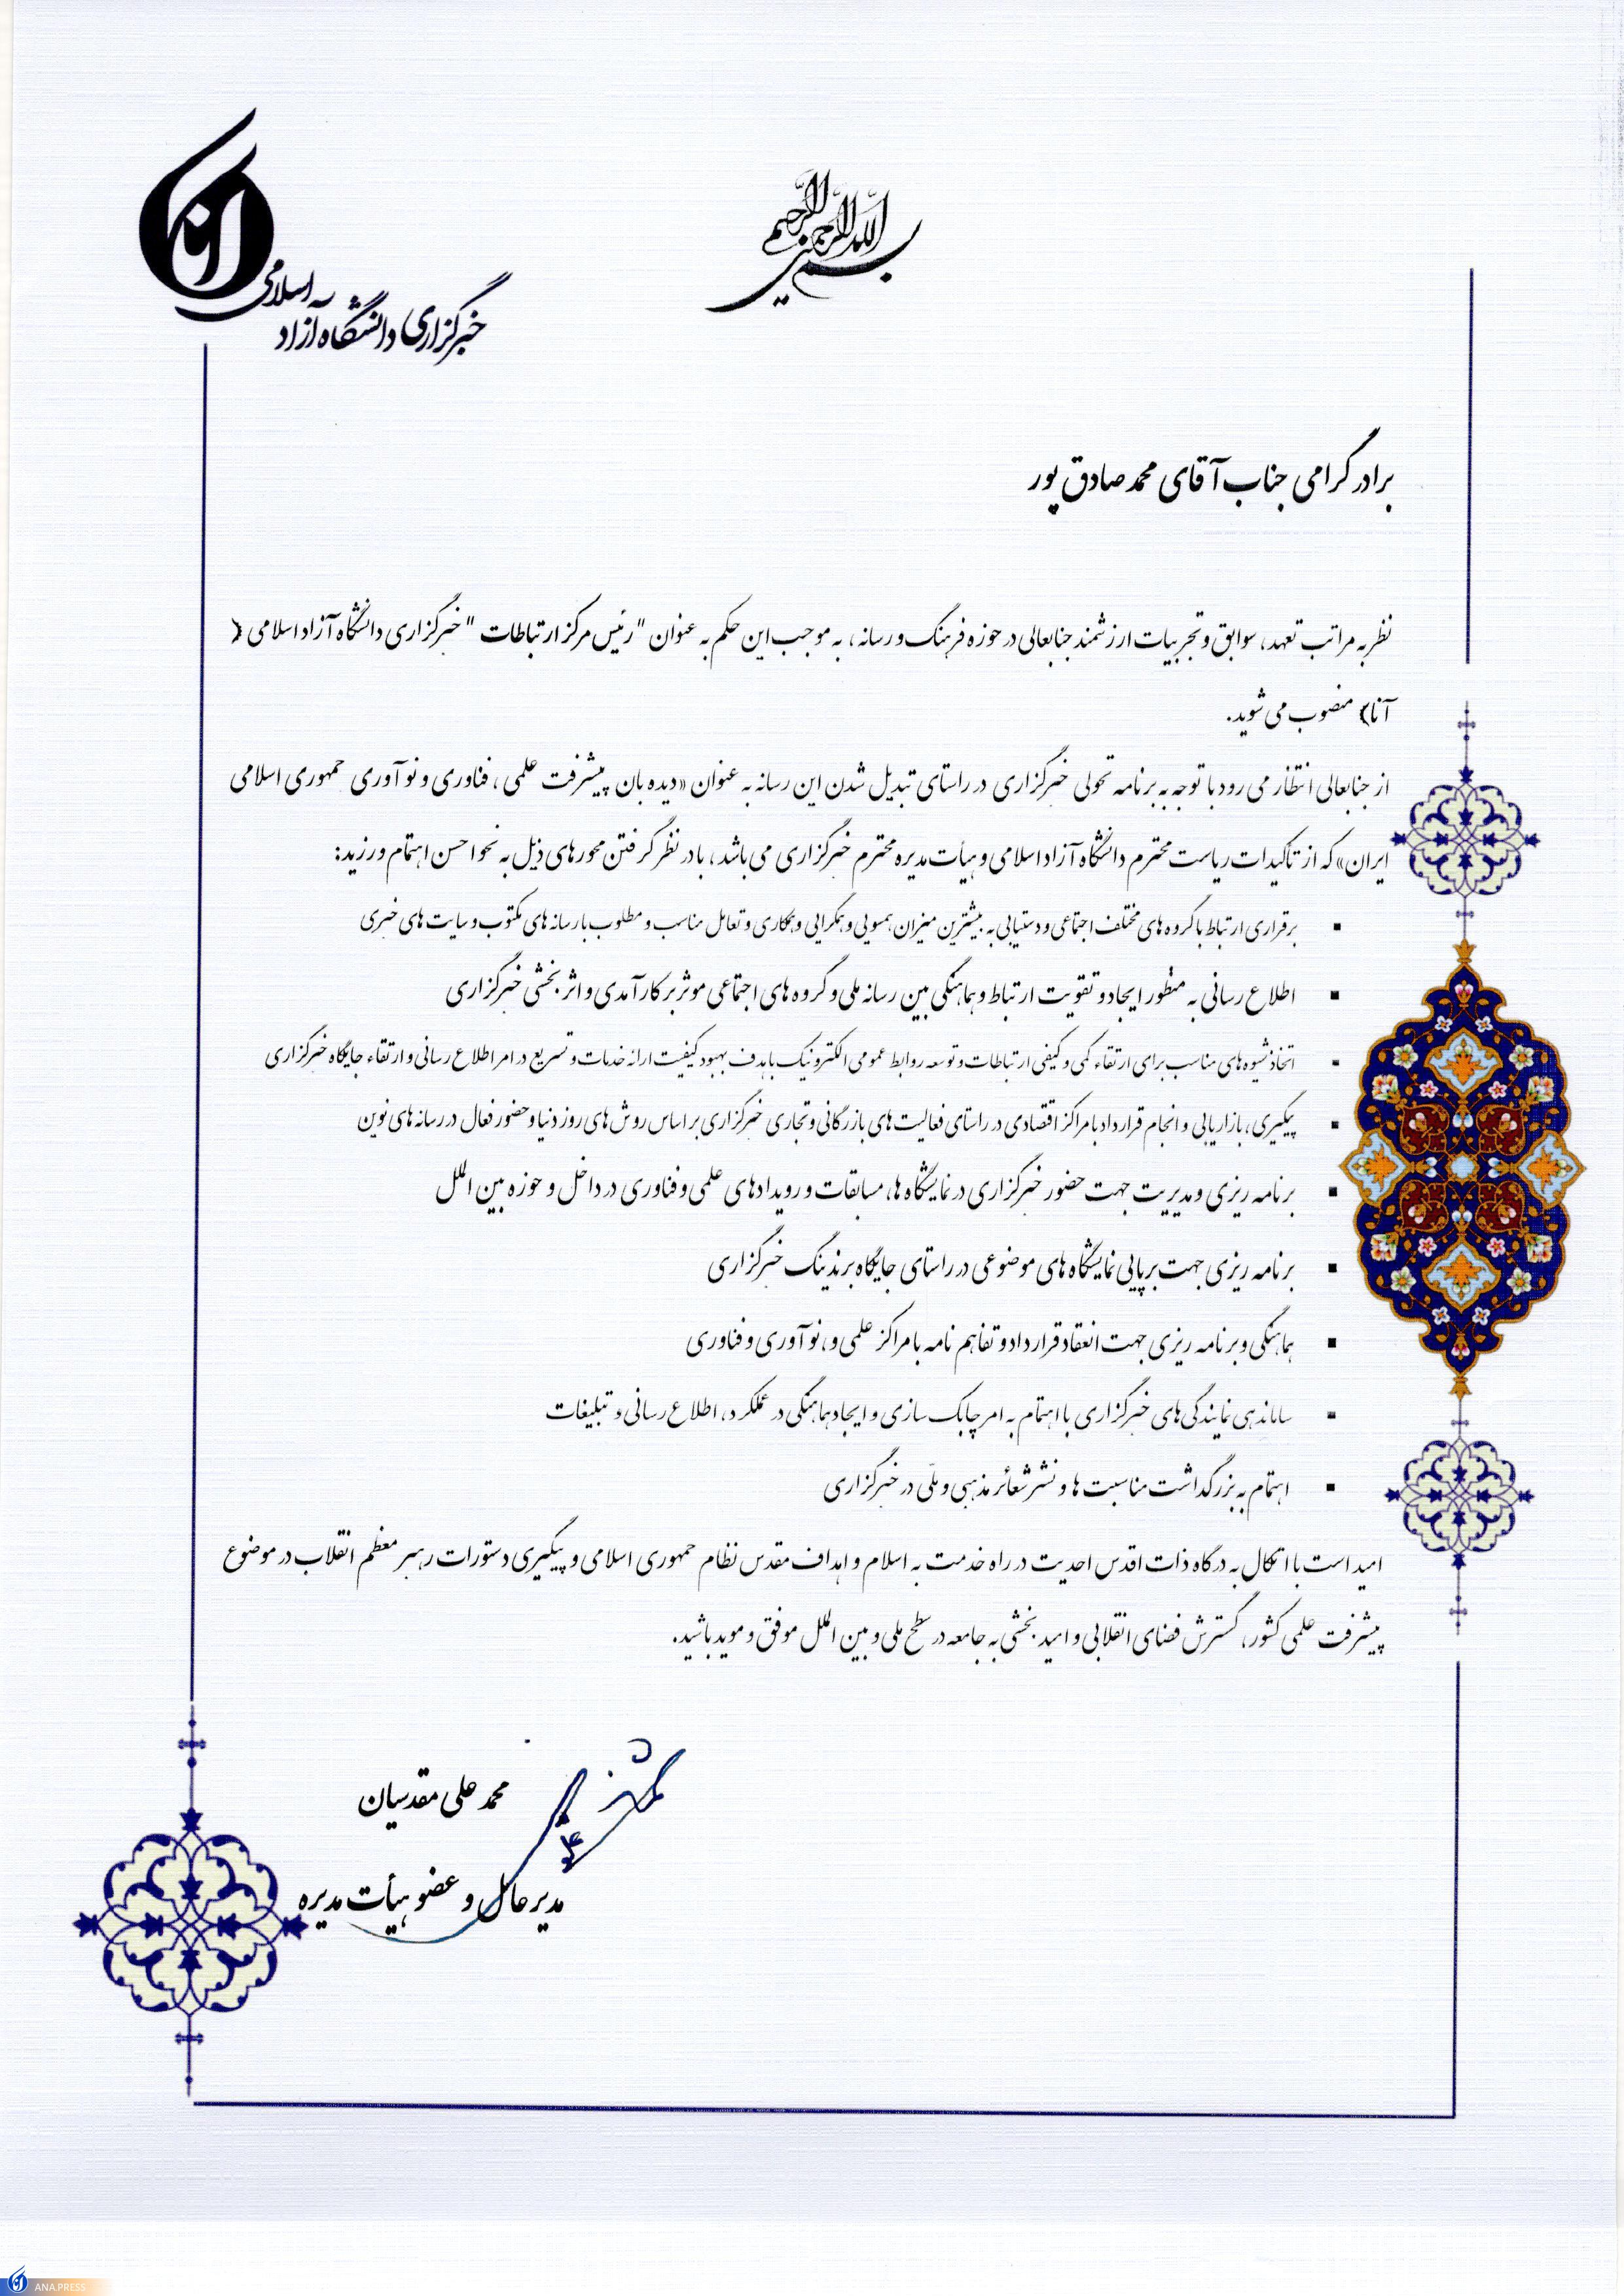 بسم الله الرحمن الرحیم
آنا
خبرگزاری دانشگاه آزاد اسلامی
برادر گرامی جناب آقای محمد صادق پور
نظر به مراتب تعهد، سوابق و تجربیات ارزشمند جنابعالی در حوزه فرهنگ و رسانه، به موجب این حکم به عنوان "رئیس مرکز ارتباطات " خبرگزاری دانشگاه آزاد اسلامی (
آنا) منصوب می شوید.
از جنابعالی انتظار می رود با توجه به برنامه تحولی خبرگزاری در راستای تبدیل شدن این رسانه به عنوان «دیده بان پیشرفت علمی ، فناوری و نوآوری جمهوری اسلامی
ایران» که از تاکیدات ریاست محترم دانشگاه آزاد اسلامی و هیأت مدیره محترم خبرگزاری می باشد، با در نظر گرفتن محورهای ذیل به نحو احسن اهتمام ورزید:
▪ برقراری ارتباط با گروه های مختلف اجتماعی و دستیابی به بیشترین میزان همسویی و همگرایی و همکاری و تعامل مناسب و مطلوب با رسانه های مکتوب و سایت های خبری
▪ اطلاع رسانی به منظور ایجاد و تقویت ارتباط و هماهنگی بین رسانه ملی و گروه های اجتماعی موثر بر کارآمدی و اثر بخشی خبرگزاری
▪ اتخاذ شیوه های مناسب برای ارتقاء کمی و کیفی ارتباطات و توسعه روابط عمومی الکترونیک با هدف بهبود کیفیت ارائه خدمات و تسریع در امر اطلاع رسانی و ارتقاء جایگاه خبرگزاری
▪ پیگیری، بازاریابی و انجام قرارداد با مراکز اقتصادی در راستای فعالیت های بازرگانی و تجاری خبرگزاری بر اساس روش های روز دنیا و حضور فعال در رسانه های نوین
▪ برنامه ریزی و مدیریت جهت حضور خبرگزاری در نمایشگاه ها، مسابقات و رویدادهای علمی و فناوری در داخل و حوزه بین الملل
▪ برنامه ریزی جهت برپایی نمایشگاه های موضوعی در راستای جایگاه برندینگ خبرگزاری
▪ هماهنگی و برنامه ریزی جهت انعقاد قرارداد و تفاهم نامه با مراکز علمی و، نوآوری و فناوری
▪ ساماندهی نمایندگی های خبرگزاری با اهتمام به امر چابک سازی و ایجاد هماهنگی در عملکرد، اطلاع رسانی و تبلیغات
▪ اهتمام به بزرگداشت مناسبت ها و نشر شعائر مذهبی و ملّی در خبرگزاری
امید است با اتکال به درگاه ذات اقدس احدیت در راه خدمت به اسلام و اهداف مقدس نظام جمهوری اسلامی و پیگیری دستورات رهبر معظم انقلاب در موضوع
پیشرفت علمی کشور، گسترش فضای انقلابی و امید بخشی به جامعه در سطح ملی و بین الملل موفق و موید باشید.
محمد علی مقدسیان
مدیر عامل و عضو هیأت مدیره
آنا ANA.PRESS